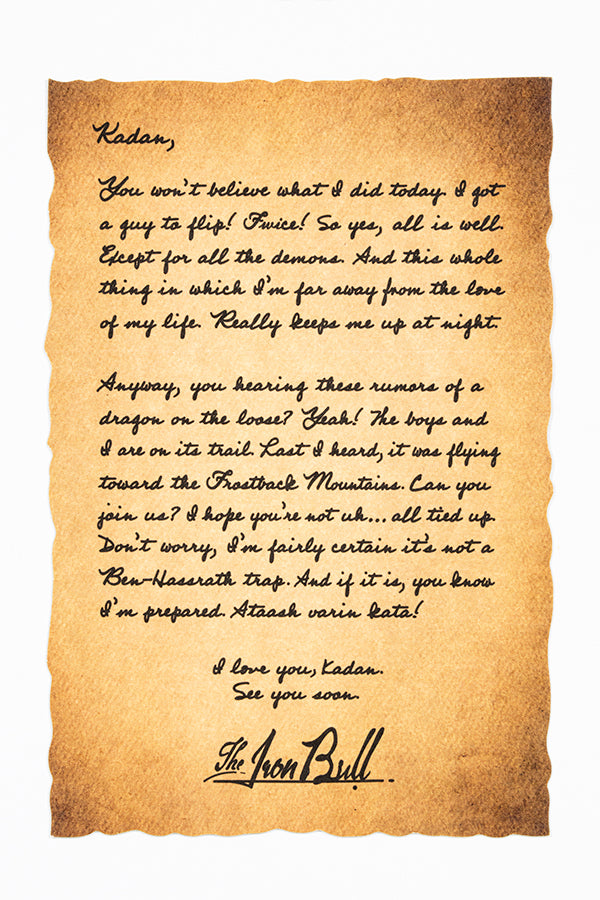 Kadan,
You won't believe what I did today. I got
a guy to flip! Twice! So yes, all is well.
Except for all the demons. And this whole
thing in which I'm far away from the love
of my life. Really keeps me up at night.
Anyway, you hearing these rumors of a
dragon on the loose? Yeah! The boys and
I are on its trail. Last I heard, it was flying
toward the Frostback Mountains. Can you
join us? I hope you're not uh... all tied up.
Don't worry, I'm fairly certain it's not a
Ben-Hassrath trap. And if it is, you know
I'm prepared. Ataash varin kata!
I love you, Kadan.
See you soon.
The Iron Bull